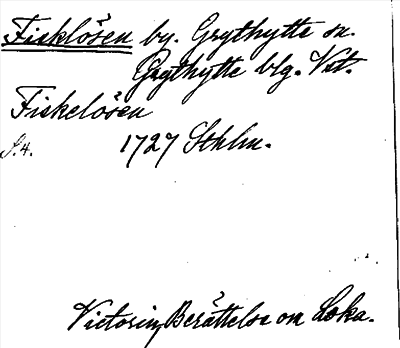 Fisklösen by. Grythytte sn.
Grythytte blg. Vstm.
Fiskelösen
S. 4. 1727 Sthlm.
Victorin, Berättelse om Loka.